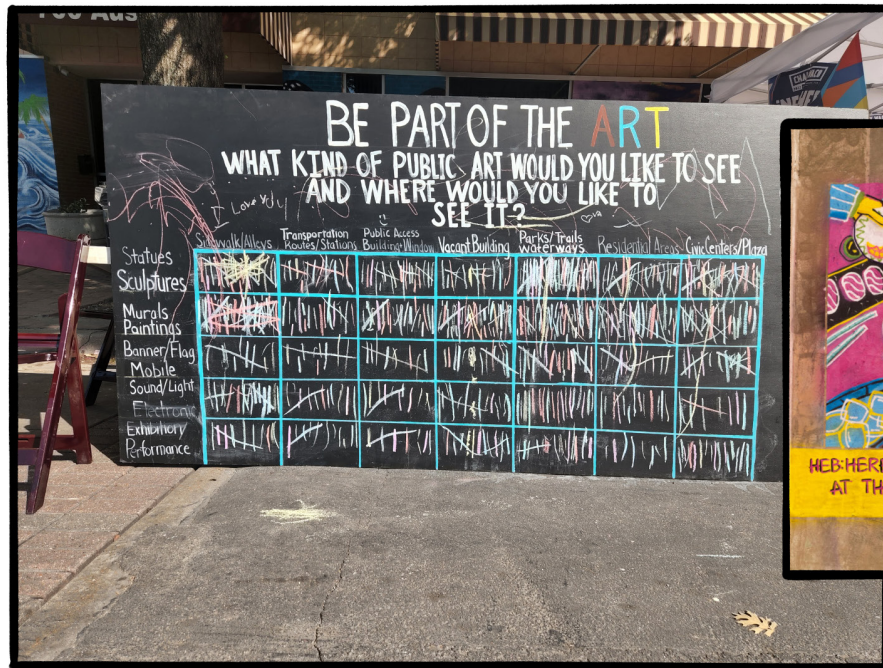 BE PART OF THE ART
WHAT KIND OF PUBLIC ART WOULD YOU LIKE TO SEE
AND WHERE WOULD YOU LIKE TO
SEE IT?
I Love you
Sidewalk/Alleys
Transportation
Routes/Stations
Public Access
Building+Window
Vacant Building
Parks/Trails
waterways
Residential Areas
Civic Centers/Plaza
Statues
Sculptures
Murals
Paintings
Banner/Flag
Mobile
Sound/Light
Electronic
Exhibition/
Performance
HEB:HER
AT TH